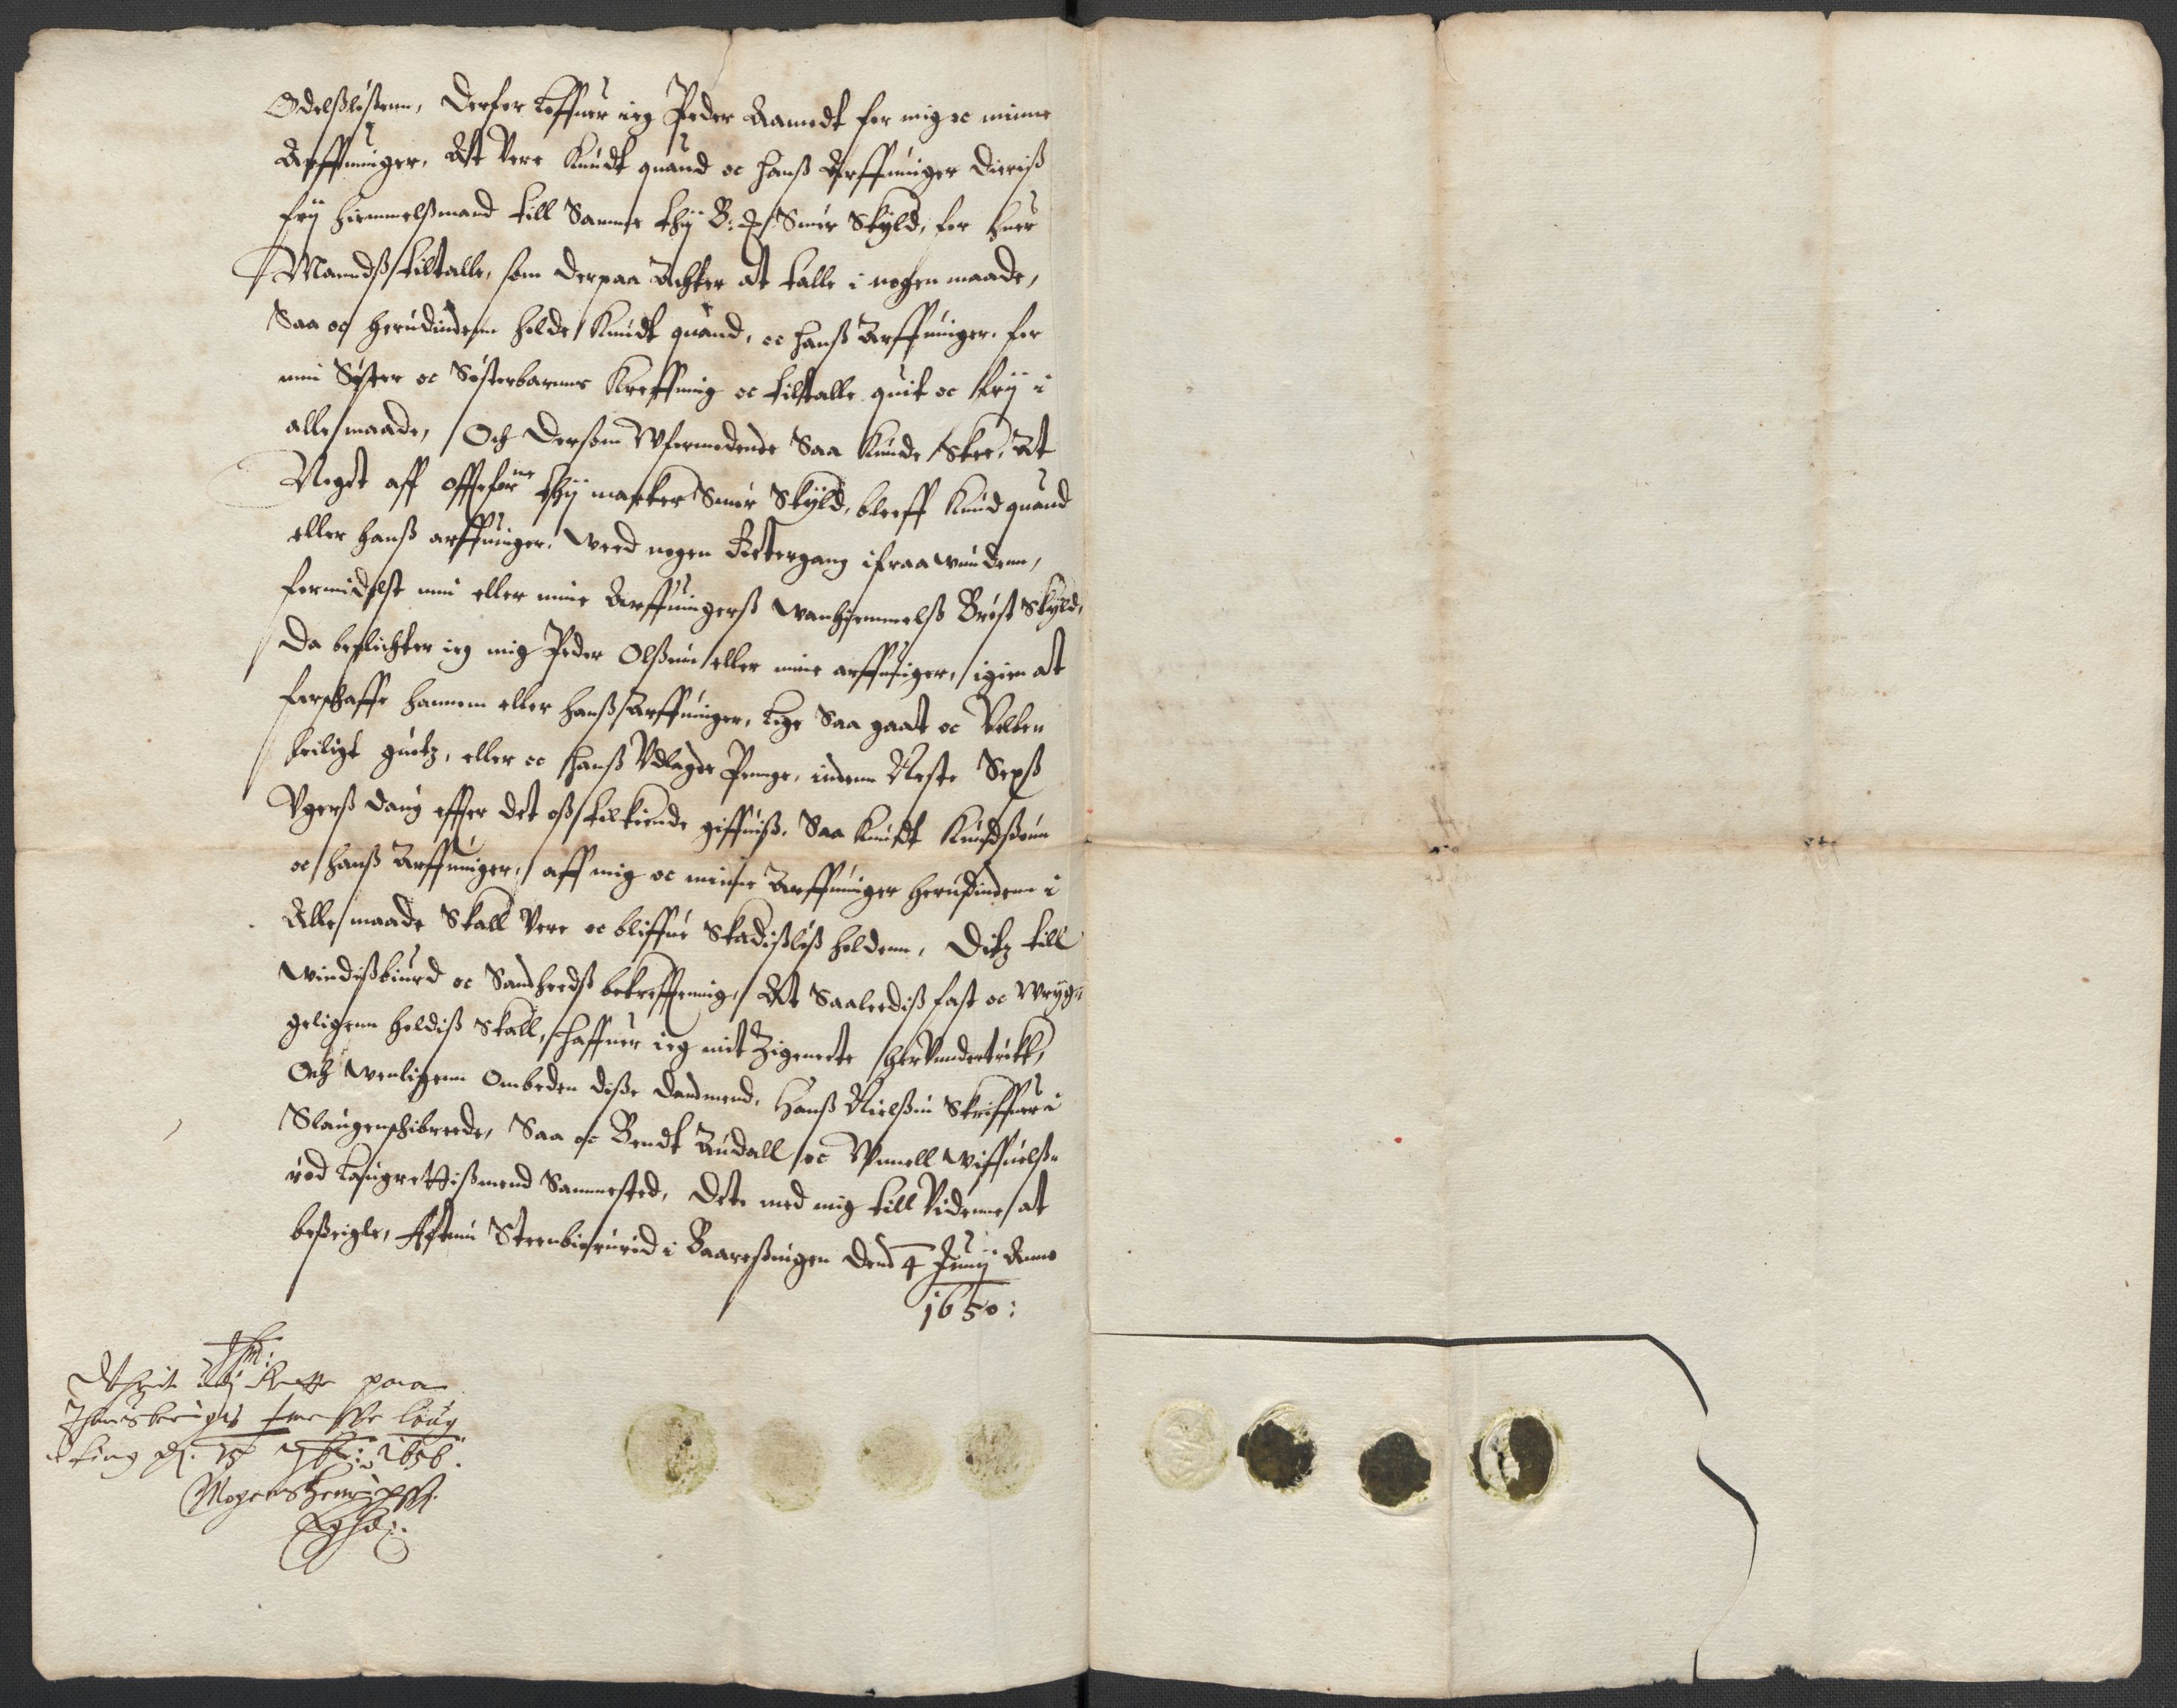 Odelsløßenn, Derfor loffuer ieg Peder Aamodt for mig oc minne
Arffuinger, Att Vere Knudt quand oc hanß Arffuinger Dieriß
frij hiemmelßmand till Samme thij B: Smør Skyld, for huer
Manndß tiltalle, som derpaa Achter at talle i nogen maade,
Saa oc herudindenn holde Knudt quand, oc hanß Arffuinger, for
min Søster oc Søsterbarnns Kreffning oc tiltalle quit oc frij i
alle maade, Och Dersom Wformodende Saa Kunde Skee, At
Nogit aff offtebete thij marker Smør Skyld, bleeff Knud quand
eller hanß arffuinger, weed nogen Rettergang ifraa wundenn,
formidelst min eller mine Arffuingerß wanhjemmelß Brøst Skyld,
Da beplichter ieg mig Peder Olßenn eller mine arffuinger, igien at
forschaffe hannem eller hanß Arffuinger, lige Saa gaat oc Vel
beiligt guotz, eller oc hanß Vdlagde Penge, indenn Neste Sexß
Vgerß daug effter det oß tilkiende giffuiß, Saa Knudt Knudßenn
oc hanß Arffuinger, aff mig oc minne Arffuinger herudindenn i
Alle maade Skall Vere oc bliffue Skadißløß holdenn, Ditz till
windißbiurd oc Sandheedß bekreffenning, At Saaleediß fast oc Wryg=
geligenn holdiß Skall, haffuer ieg mit Zigenette her Vnndertrøkt,
Och wenligenn ombeden diße Dandmend, Hanß Nielßen Skriffuer i
Slaugenschibreede, Saa oc Bendt Audall oc Gunell Wiffuelß=
rød Laugrettißmend Sammested, dete med mig till Videnne at
beßeigle, Actum Steenbierurid i Baareßingen Dend 4 Junij Anno
1650:
Lest udj Rette paa
Thønsbergs Laug
ting d. 15 1656.
Mogens